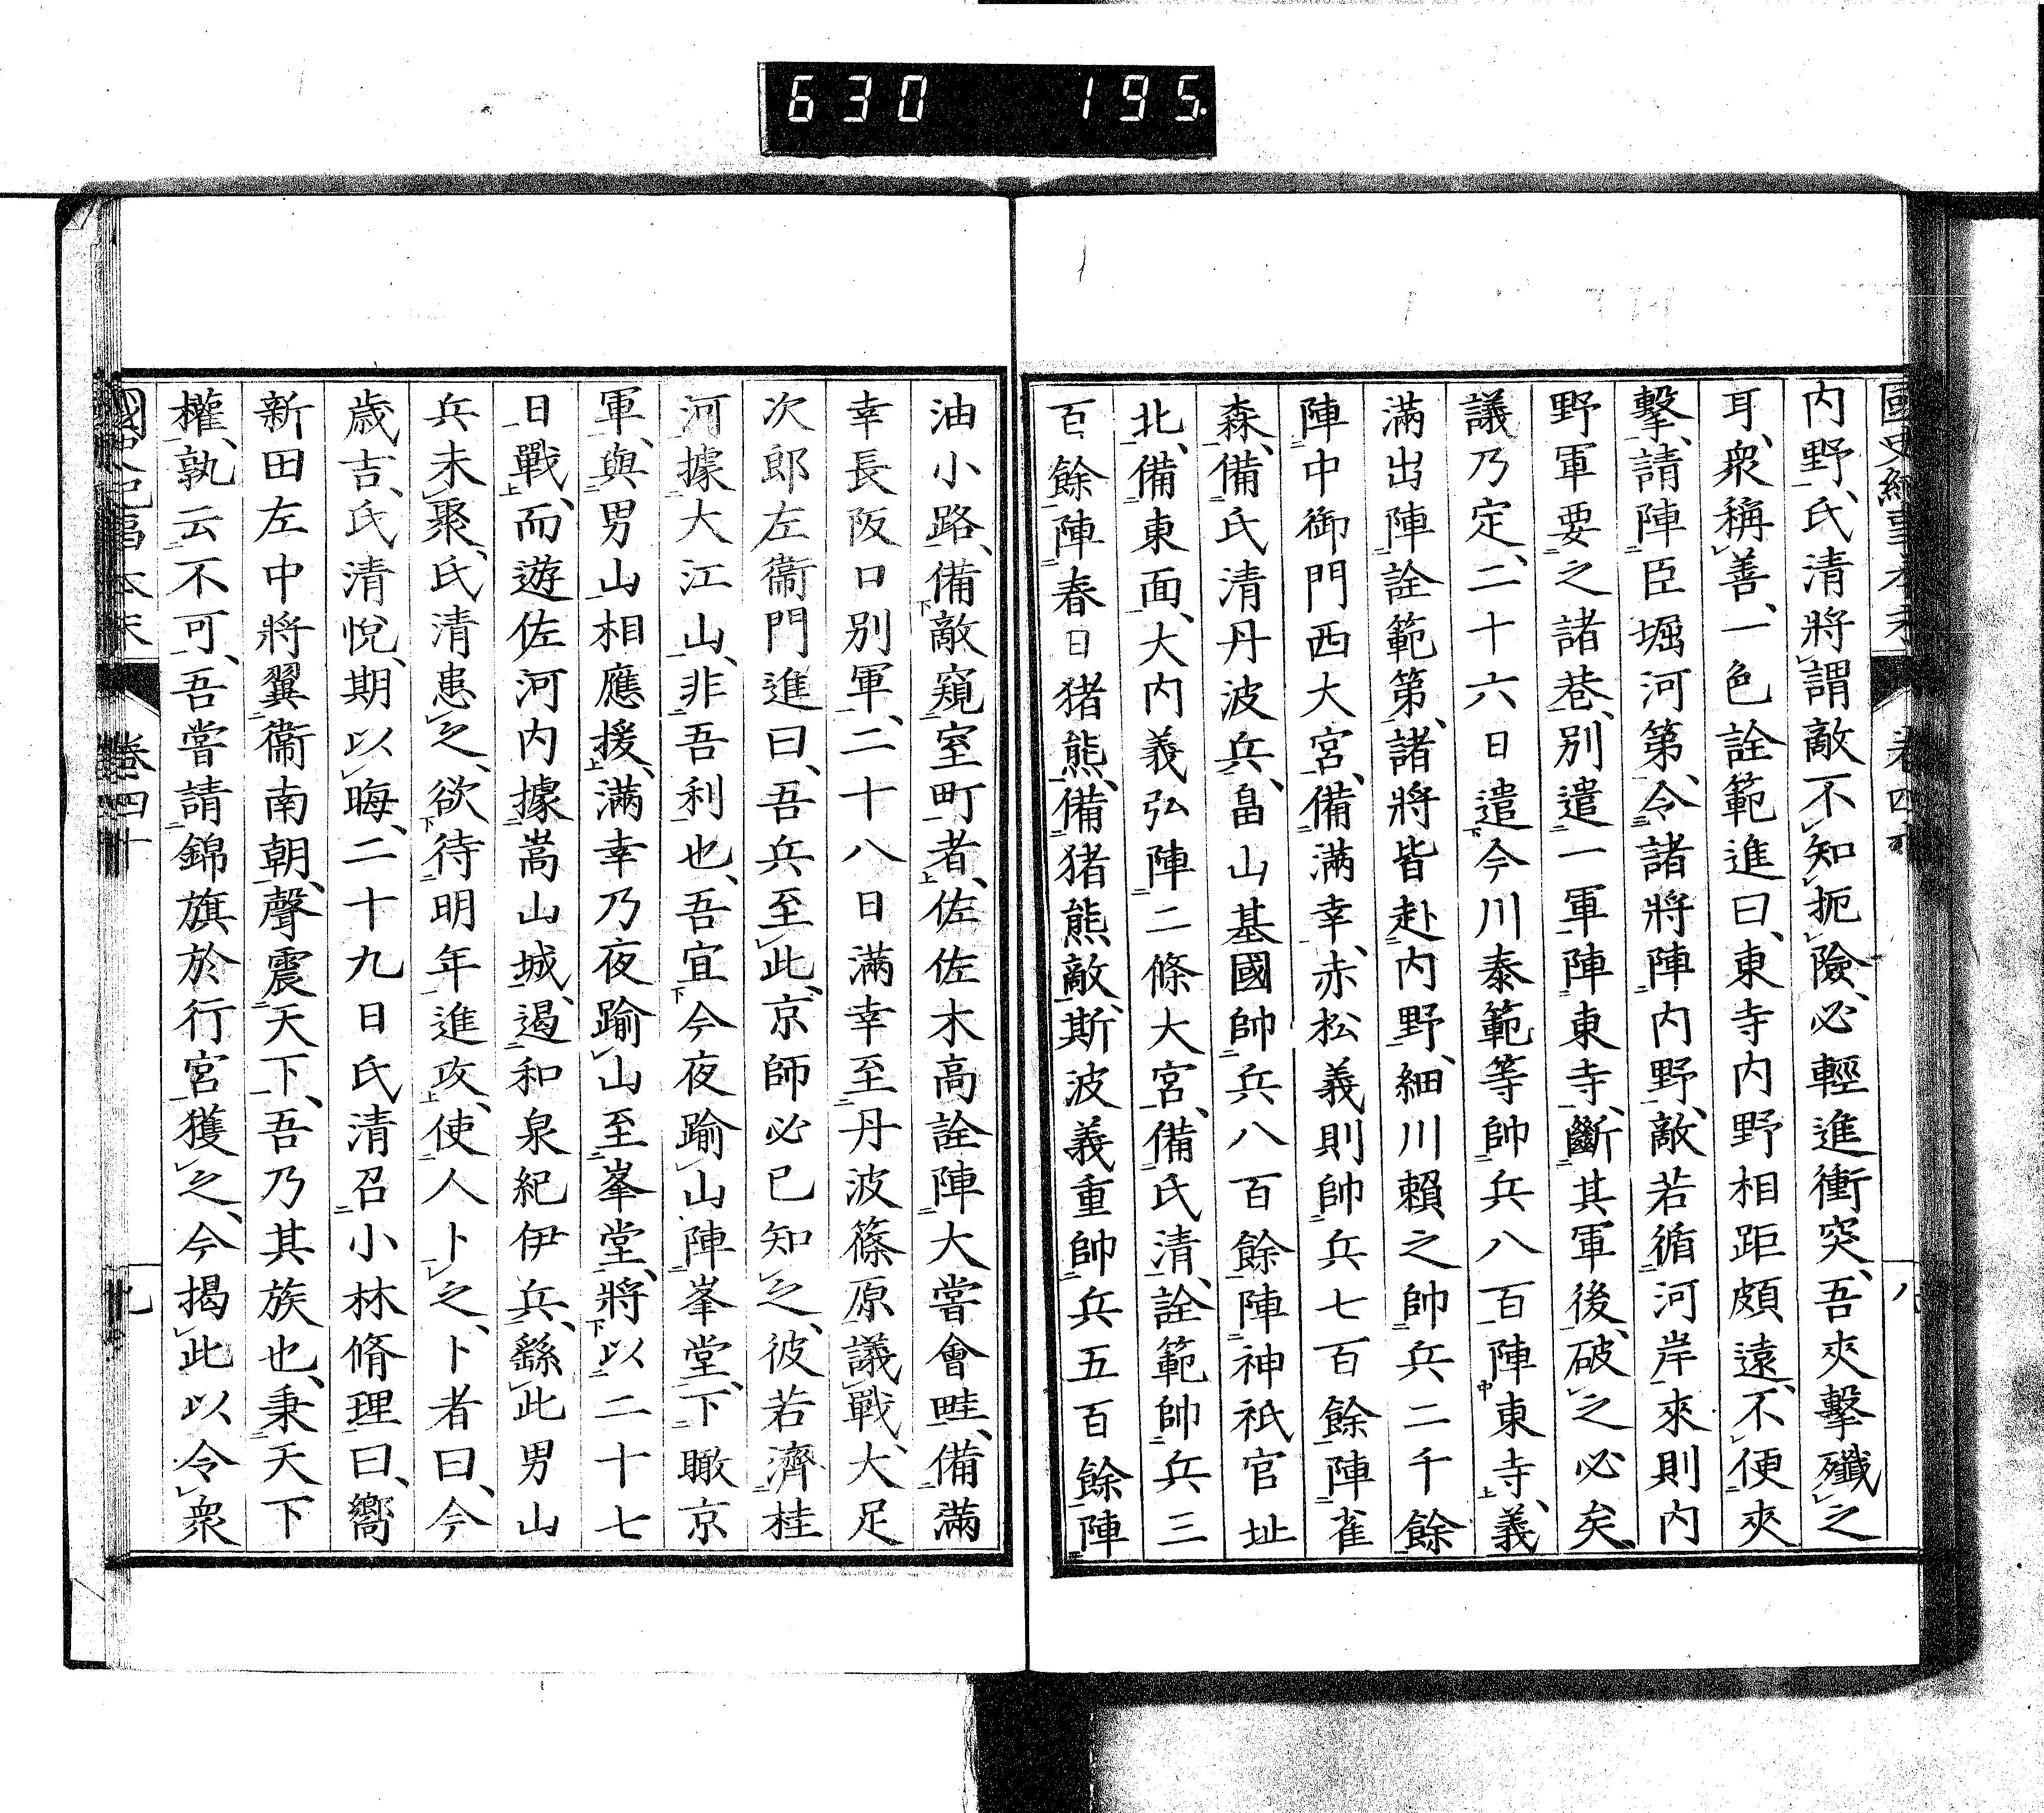 630 195.
國史紀事本末 卷四十 八
内野、氏清將謂敵不知扼險、必輕進衝突、吾夾擊殲之
耳、衆稱善、一色詮範進曰、東寺内野相距頗遠、不便夾
擊、請陣臣堀河第、令諸將陣内野、敵若循河岸來則内
野軍要之諸巷、別遣一軍陣東寺、斷其軍後、破之必矣、
議乃定、二十六日遣今川泰範等帥兵八百陣東寺、義
滿出陣詮範第、諸將皆赴内野、細川賴之帥兵二千餘
陣中御門西大宮、備滿幸、赤松義則帥兵七百餘陣雀
森、備氏清丹波兵、畠山基國帥兵八百餘陣神祇官址
北、備東面、大内義弘陣二條大宮、備氏清、詮範帥兵三
百餘陣春日猪熊、備猪熊敵、斯波義重帥兵五百餘陣
油小路、備敵窺室町者、佐佐木高詮陣大嘗會畦、備滿
幸長阪口別軍、二十八日滿幸至丹波篠原議戰、大足
次郎左衞門進曰、吾兵至此、京師必已知之、彼若濟桂
河據大江山、非吾利也、吾宜今夜踰山陣峯堂、下瞰京
軍、與男山相應援、滿幸乃夜踰山至峯堂、將以二十七
日戰、而遊佐河内據嵩山城、遏和泉紀伊兵、繇此男山
兵未聚、氏清患之、欲待明年進攻、使人卜之、卜者曰、今
歲吉、氏清悅、期以晦、二十九日氏清召小林脩理曰、嚮
新田左中將翼衞南朝、聲震天下、吾乃其族也、秉天下
權、孰云不可、吾嘗請錦旗於行宮獲之、今揭此以令衆
國史紀事本末 卷四十 九